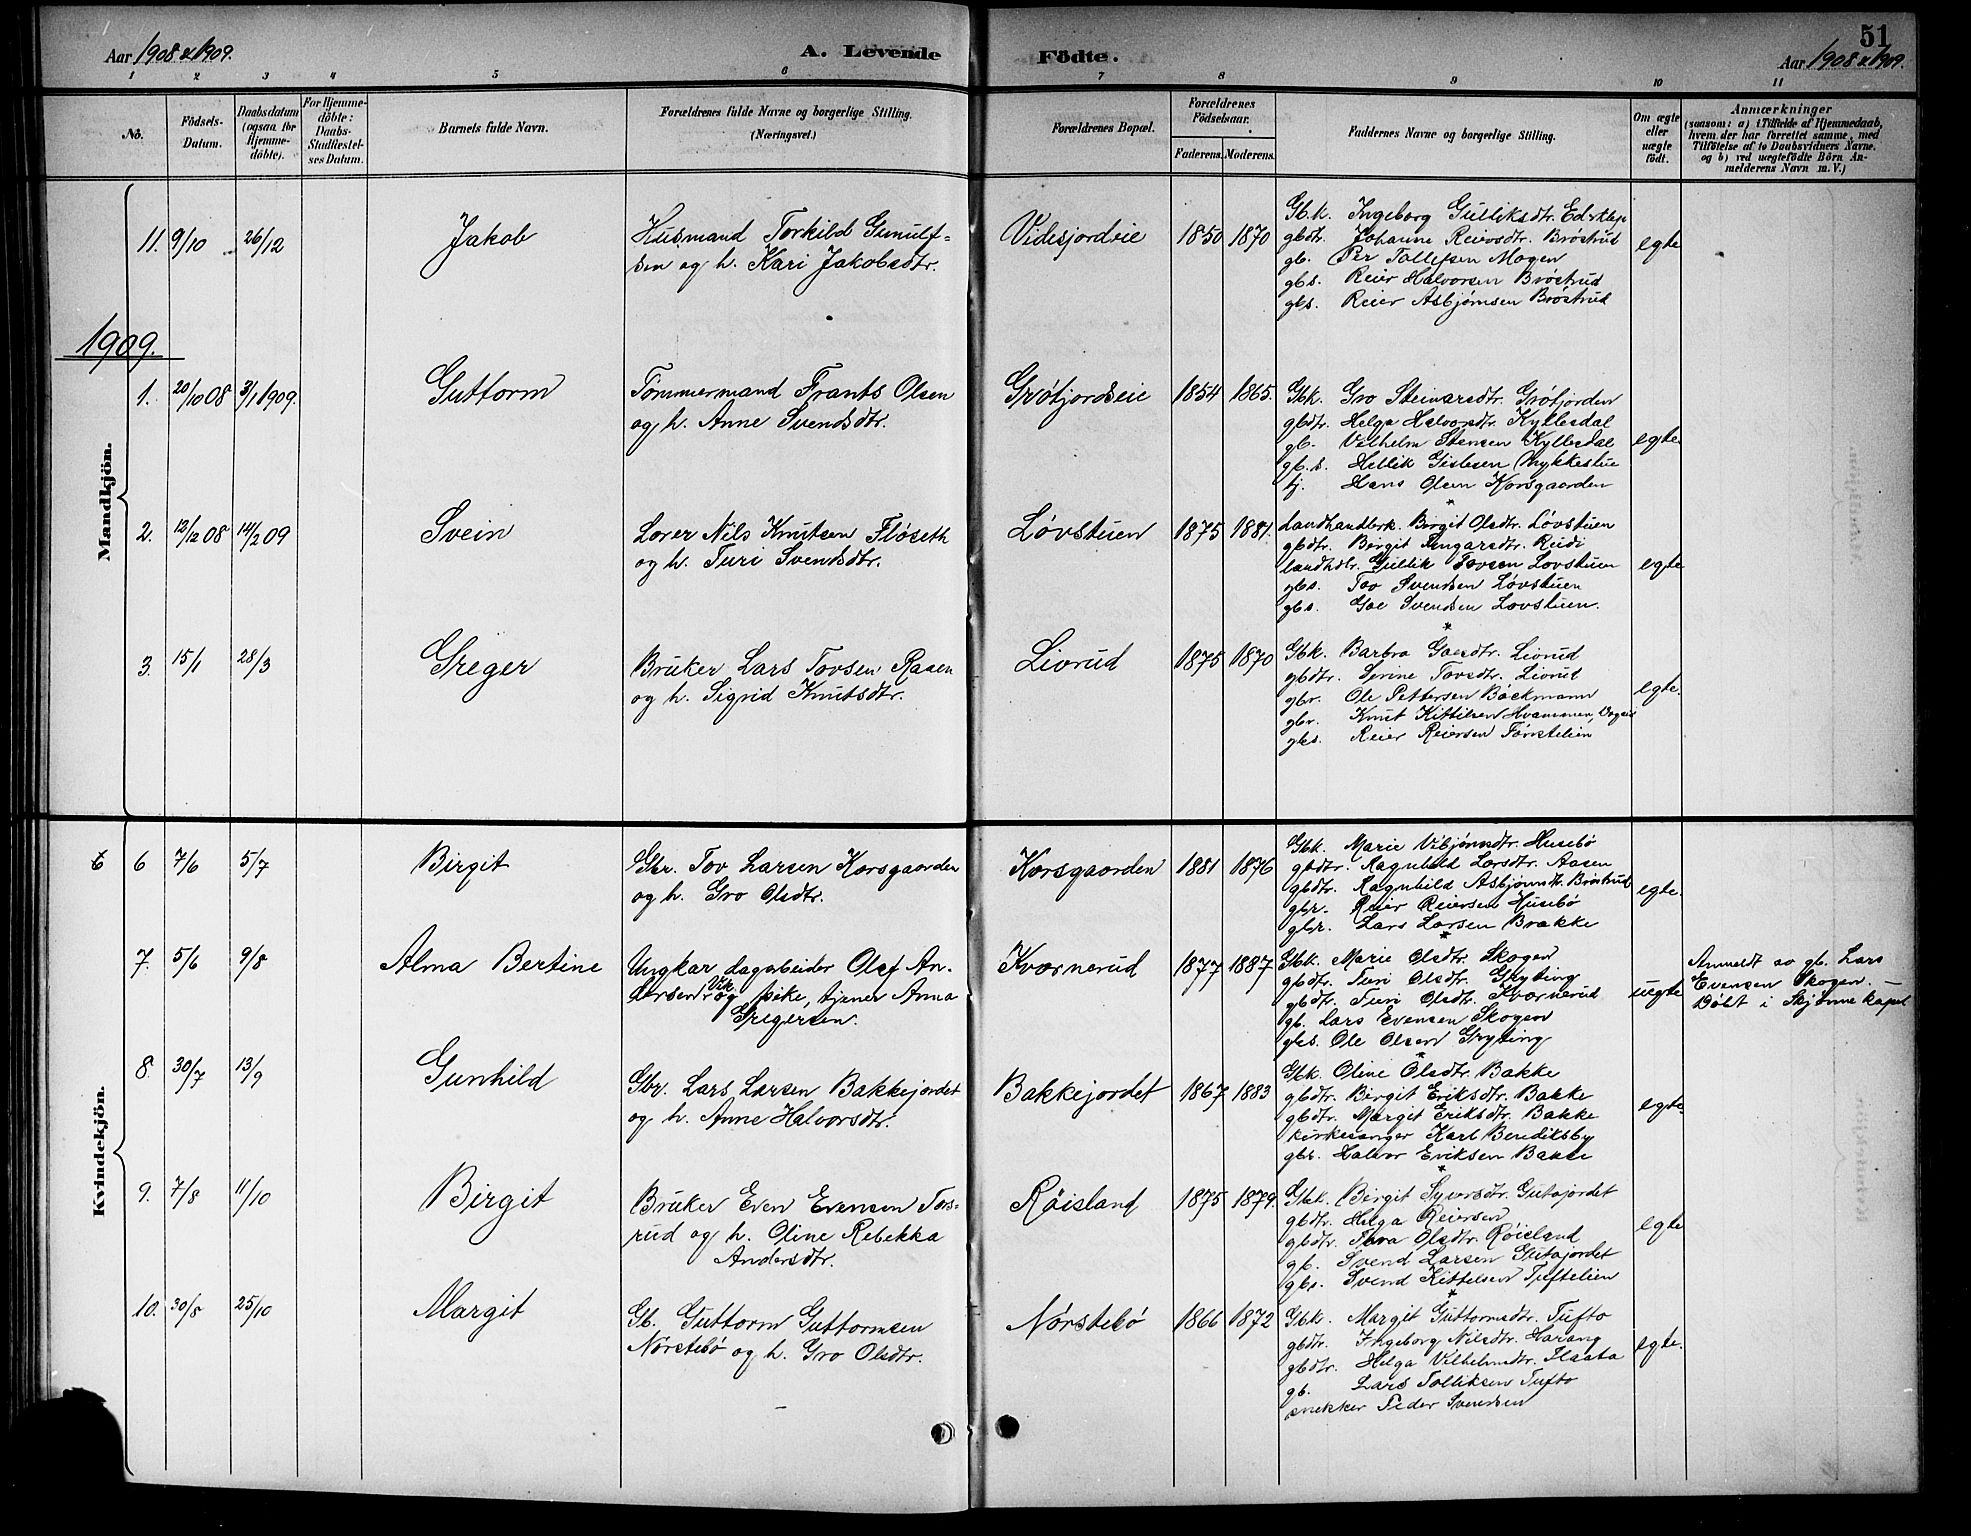 51
Aar 1908 & 1909.
A. Levende Födte.
Aar 1908 & 1909.
1 2 3 4 5 6 7 8 9 10 11
No. Födsels-Datum. Daabsdatum (ogsaa for Hjemme-döbte). For Hjemme-döbte: Daabs-Stadfæstel-ses Datum. Barnets fulde Navn. Forældrenes fulde Navne og borgerlige Stilling. (Næringsvei.) Forældrenes Bopæl. Forældrenes Födselsaar. Faderens. Moderens. Faddernes Navne og borgerlige Stilling. Om ægte eller uægte födt. Anmærkninger (saasom: a) i Tilfælde af Hjemmedaab, hvem der har forrettet samme, med Tilföielse af to Daabsvidners Navne. og b) ved uægtefödte Börn An-melderens Navn m. V.)
Mandkjön.
11. 9/10 26/12 Jakob
Husmand Torkild Gunulf-
sen og h. Kari Jakobsdtr.
Videsjordeie 1850 1870
Gbk. Ingeborg Gulliksdtr.
gbdtr. Johanne Reiersdtr. Bröstrud
gb. Per Tollefsen Mogen
gbs. Reier Halvorsen Bröstrud
gbs. Reier Asbjørnsen Bröstrud
egte
1909.
1. 20/10 08 3/1 1909. Guttorm
Tømmermand Frants Olsen
og h. Anne Svendsdtr.
Grøtjordseie 1854 1865.
Gbk. Gro Steinarsdtr. Grøtjorden
gbdtr. Helga Halvorsdtr. Kyllesdal
gb. Vilhelm Stensen Kyllesdal
gb.s. Hellik Gislesen Mykkestue
tj. Hans Olsen Korsgaarden
egte.
2. 12/12 08 14/2 09 Svein
Lærer Nils Knutsen Fløseth
og h. Turi Svendsdtr.
Løvstuen 1875 1881.
Landhandlerk. Birgit Olsdtr. Løvstuen
gbdtr. Birgit Tengarsdtr. Reidi
landhdlr. Gullik Tovsen Løvstuen
gbs. Tov Svendsen Løvstuen
gbs. Goe Svendsen Løvstuen.
egte
3. 15/1 28/3 Greger
Bruker Lars Tovsen Raaen
og h. Sigrid Knutsdtr.
Livrud 1875 1870
Gbk. Barbro Goesdtr. Livrud
gbdtr. Serine Tovsdtr. Livrud
gbr. Ole Pettersen Bäckmann
gbr. Knut Kittilsen Hvammen,
gbs. Reier Reiersen Førstelien
egte.
Kvindekjön.
6 6 7/6 5/7 Birgit
Gbr. Tov Larsen Korsgaarden
og h. Gro Olsdtr.
Korsgaarden 1881 1876
Gbk. Marie Vibjønnsdtr. Husebö
gbdtr. Ragnhild Larsdtr. Aasen
gbdtr. Ragnhild Asbjønnsdtr. Bröstrud
gbr. Reier Reiersen Husebö
gbr. Lars Larsen Brække
egte.
7. 5/6 9/8 Alma Bertine
Ungkar dagarbeider Olaf An-
dersen Vik og pike, tjener Anna
Gregersen.
Kværnerud 1877 1887
Gbk. Marie Olsdtr. Skogen
gbdtr. Turi Olsdtr. Gryting
gbdtr. Turi Olsdtr. Kværnerud
gb. Lars Evensen Skogen
gbs. Ole Olsen Gryting
uegte
Anmeldt av gb. Lars
Evensen Skogen.
Døbt i Skjønne kapel
8. 30/7 13/9 Gunhild
Gbr. Lars Larsen Bakkejordet
og h. Anne Halvorsdtr.
Bakkejordet 1867 1883
Gbk. Oline Olsdtr. Bakke
gbdtr. Birgit Eriksdtr. Bakke
gbdtr. Margit Eriksdtr. Bakke
kirkesanger Karl Bendiksby
gbr. Halvor Eriksen Bakke
egte
9. 7/8 11/10 Birgit
Bruker Even Evensen Tors-
rud og h. Oline Rebekka
Andersdtr.
Røisland 1875 1879.
Gbk. Birgit Syversdtr. Gutajordet
gbdtr. Helga Reiersen
gbdtr. Tova Olsdtr. Røisland
gb. Svend Larsen Gutajordet
gbs. Svend Kittelsen Tuftelien
egte
10. 30/8 25/10 Margit
Gb. Guttorm Guttormsen
Nørstebø og h. Gro Olsdtr.
Nørstebø 1866 1872
Gbk. Margit Guttormsdtr. Tufto
gbdtr. Ingeborg Nilsdtr. Harang
gbdtr. Helga Vilhelmsdtr. Flaata
gb. Lars Tolliksen Tufto
snekker Peder Svendsen
egte.